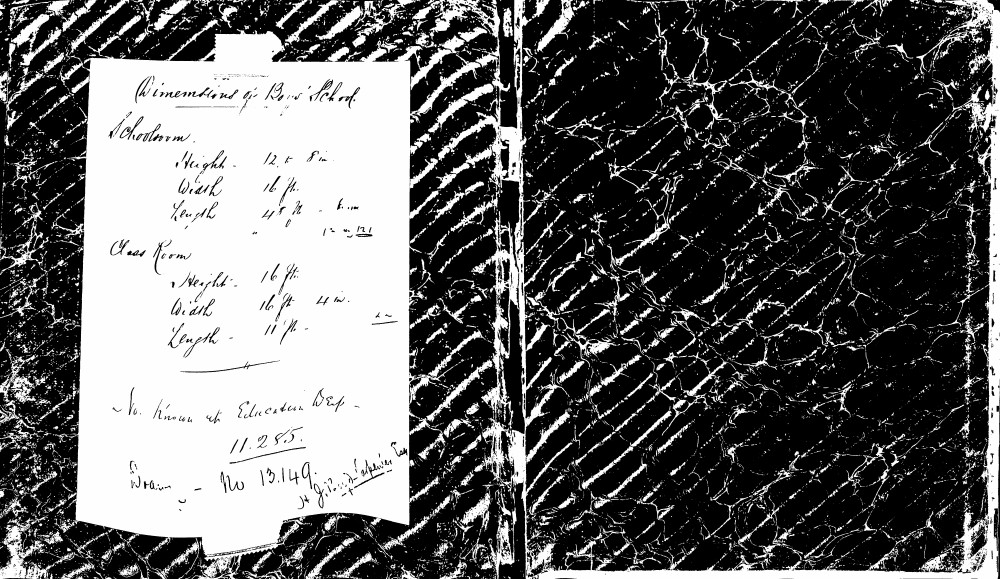 Dimensions of Boys' School.
Schoolroom.
Height - 12 ft 8 in.
Width 16 ft.
Length 48 ft -
Class Room
Height - 16 ft.
Width 16 ft 4 in.
Length - 11 ft -
No. Known at Education Dep -
11.285.
- No 13.149.